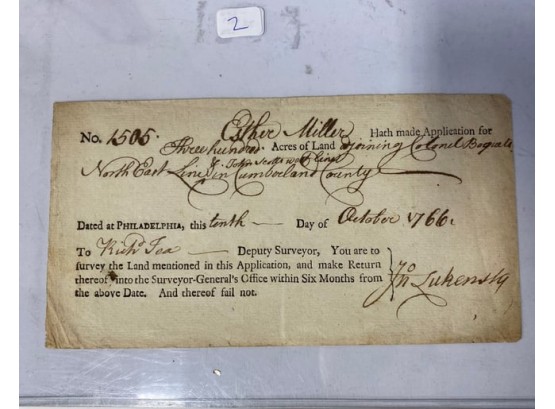 2
No. 1505. Esther Miller Hath made Application for
Three hundred Acres of Land adjoining Colonel Boquets
North East Line & John Scotts west line in Cumberland County
Dated at PHILADELPHIA, this tenth Day of October 1766
To Richd Tea Deputy Surveyor, You are to
survey the Land mentioned in this Application, and make Return
thereof into the Surveyor-General's Office within Six Months from
the above Date. And thereof fail not.
Jno Lukens